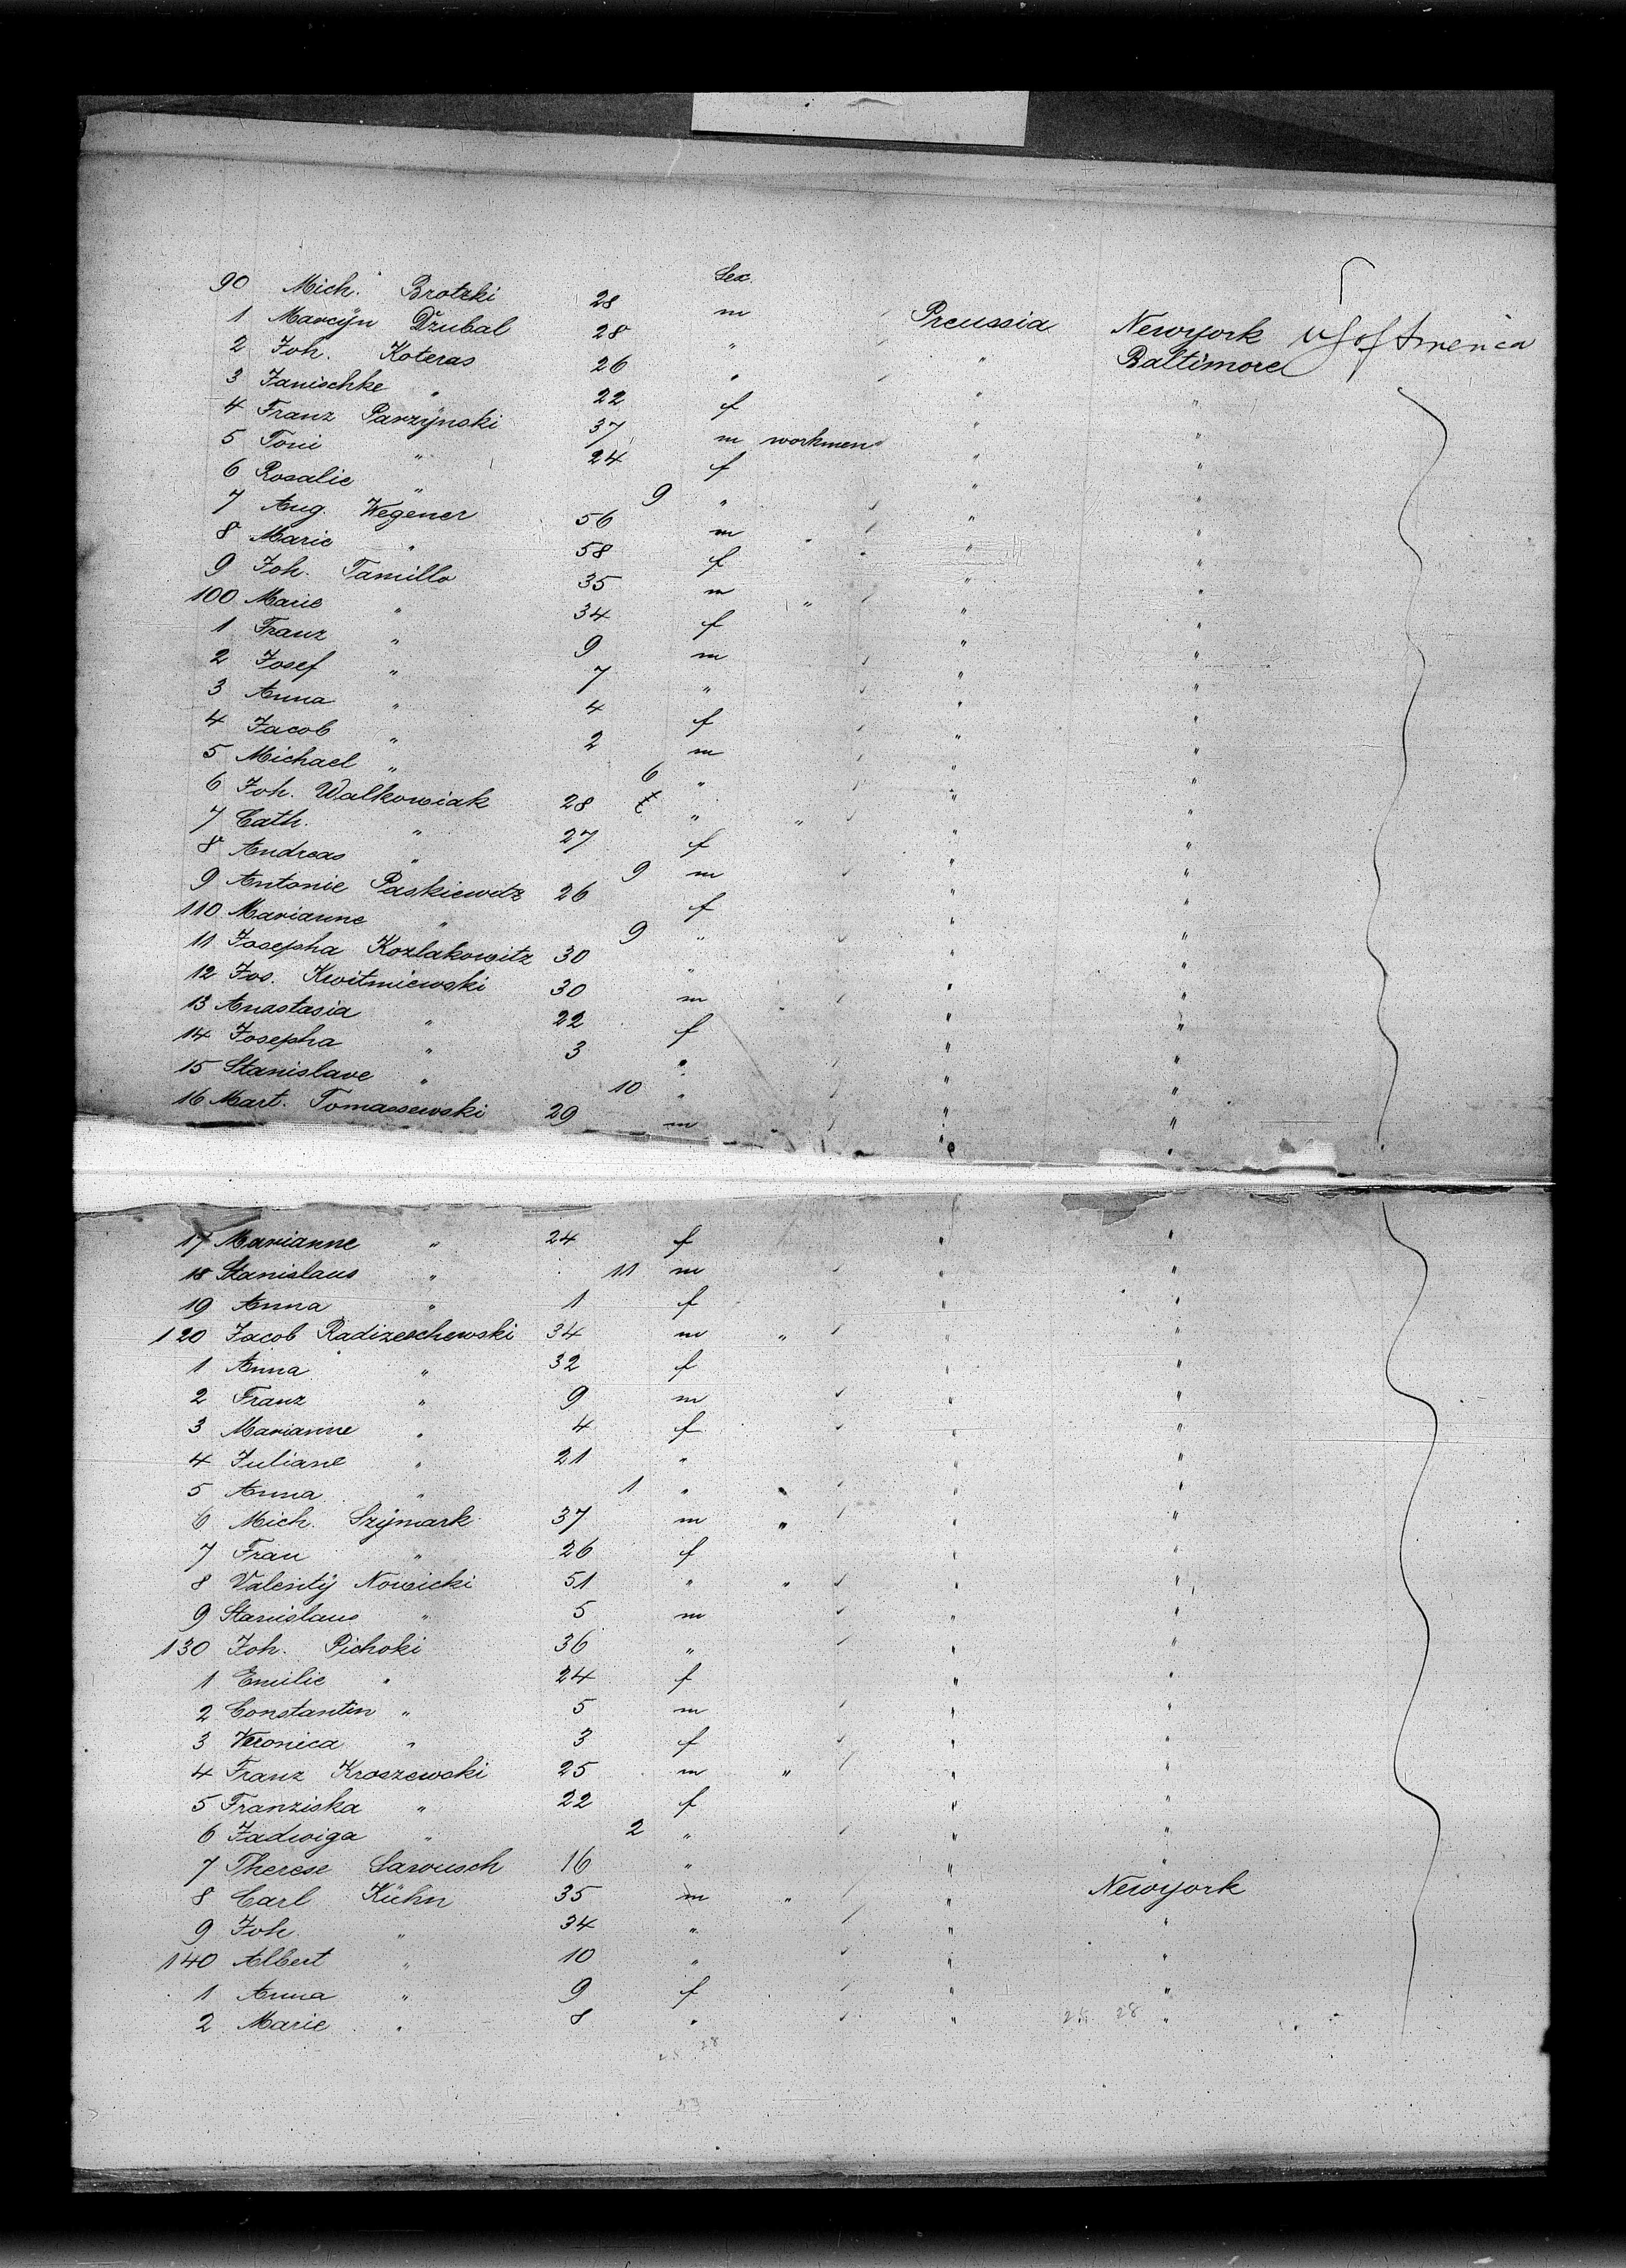 Sex.
90 Mich. Brotzki 28 m Preussia Newyork U S of America
1 Marcÿn Dzubal 28 " " Baltimore
2 Joh. Koteras 26 " " "
3 Janischke " 22 f " "
4 Franz Parzÿnski 37 m workmen " "
5 Toni " 24 f " "
6 Rosalie " 9 " " "
7 Aug. Wegener 56 m " " "
8 Marie " 58 f " "
9 Joh. Tamillo 35 m " " "
100 Marie " 34 f " "
1 Franz " 9 m " "
2 Josef " 7 " " "
3 Anna " 4 f " "
4 Jacob " 2 m " "
5 Michael " 6 " " "
6 Joh. Walkowiak 28 " " " "
7 Cath. " 27 f " "
8 Andreas " 9 m " "
9 Antonie Paskiewitz 26 f " "
110 Marianne " 9 " " "
11 Josepha Kozlakowitz 30 " " "
12 Jos. Kwitniewski 30 m " "
13 Anastasia " 22 f " "
14 Josepha " 3 " " "
15 Stanislave " 10 " " "
16 Mart. Tomassewski 29 m " "
17 Marianne " 24 f " "
18 Stanislaus " 11 m " "
19 Anna " 1 f " "
120 Jacob Radizeschewski 34 m " " "
1 Anna " 32 f " "
2 Franz " 9 m " "
3 Marianne " 4 f " "
4 Juliane " 21 " " "
5 Anna " 1 " " " "
6 Mich. Szÿmark 37 m " " "
7 Frau " 26 f " "
8 Valentÿ Nowicki 51 " " " "
9 Stanislaus " 5 m " "
130 Joh. Pichoki 36 " " "
1 Emilie " 24 f " "
2 Constantin " 5 m " "
3 Veronica " 3 f " "
4 Franz Kroszewski 25 m " " "
5 Franziska " 22 f " "
6 Jadwiga " 2 " " "
7 Therese Sarousch 16 " " "
8 Carl Kühn 35 m " " Newyork
9 Joh. " 34 " " "
140 Albert " 10 " " "
1 Anna " 9 f " "
2 Marie " 8 " " "